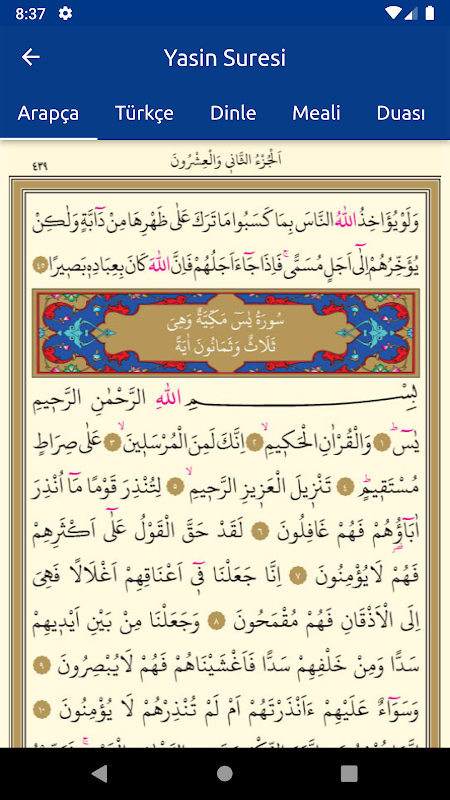 8:37
Yasin Suresi
Arapça Türkçe Dinle Meali Duası
اَلْجُزْءُ الثَّانٖي وَالْعِشْرُونَ ٤٣٩
وَلَوْ يُؤَاخِذُ اللّٰهُ النَّاسَ بِمَا كَسَبُوا مَا تَرَكَ عَلٰى ظَهْرِهَا مِنْ دَٓابَّةٍ وَلٰكِنْ
يُؤَخِّرُهُمْ اِلٰٓى اَجَلٍ مُسَمًّىۚ فَاِذَا جَٓاءَ اَجَلُهُمْ فَاِنَّ اللّٰهَ كَانَ بِعِبَادِهٖ بَصٖيرًا ٤٥
سُورَةُ يٰسٓ مَكِّيَّةٌ وَهِيَ
ثَلَاثٌ وَثَمَانُونَ اٰيَةً
بِسْمِ اللّٰهِ الرَّحْمٰنِ الرَّحٖيمِ
يٰسٓۜ ١ وَالْقُرْاٰنِ الْحَكٖيمِۙ ٢ اِنَّكَ لَمِنَ الْمُرْسَلٖينَۙ ٣ عَلٰى صِرَاطٍ
مُسْتَقٖيمٍۜ ٤ تَنْزٖيلَ الْعَزٖيزِ الرَّحٖيمِۙ ٥ لِتُنْذِرَ قَوْمًا مَٓا اُنْذِرَ
اٰبَٓاؤُ۬هُمْ فَهُمْ غَافِلُونَ ٦ لَقَدْ حَقَّ الْقَوْلُ عَلٰٓى اَكْثَرِهِمْ
فَهُمْ لَا يُؤْمِنُونَ ٧ اِنَّا جَعَلْنَا فٖٓي اَعْنَاقِهِمْ اَغْلَالًا فَهِيَ
اِلَى الْاَذْقَانِ فَهُمْ مُقْمَحُونَ ٨ وَجَعَلْنَا مِنْ بَيْنِ اَيْدٖيهِمْ
سَدًّا وَمِنْ خَلْفِهِمْ سَدًّا فَاَغْشَيْنَاهُمْ فَهُمْ لَا يُبْصِرُونَ ٩
وَسَوَٓاءٌ عَلَيْهِمْ ءَاَنْذَرْتَهُمْ اَمْ لَمْ تُنْذِرْهُمْ لَا يُؤْمِنُونَ ١٠